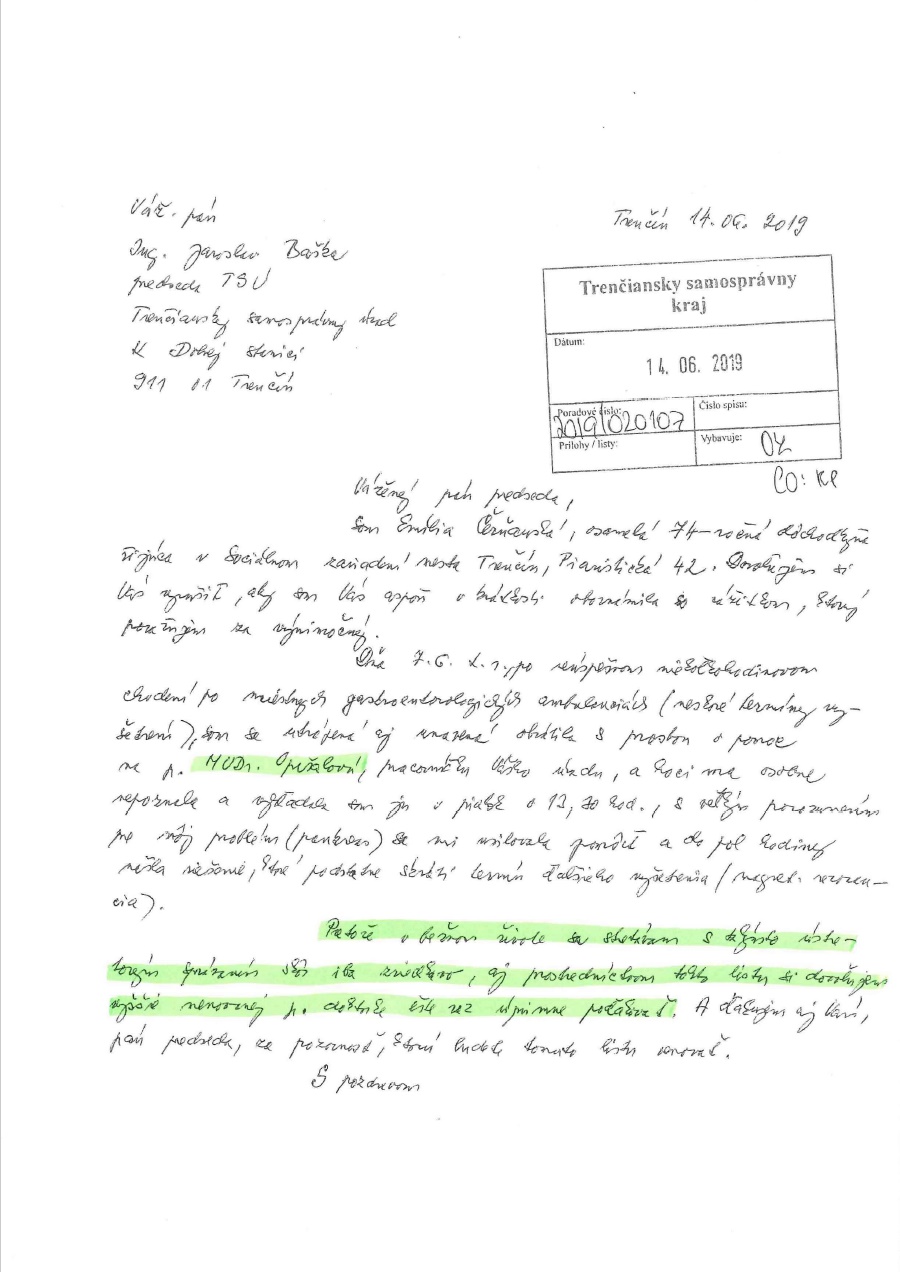 Váž. pán
Ing. Jaroslav Baška
predseda TSÚ
Trenčiansky samosprávny úrad
K Dolnej stanici
911 01 Trenčín
Trenčín 14.06. 2019
Trenčiansky samosprávny
kraj
Dátum:
14. 06. 2019
Poradové číslo:
2019/020107
Číslo spisu:
Prílohy / listy:
Vybavuje:
OZ
CO: KP
Vážený pán predseda,
som Emília Čerňanská, osamelá 74-ročná dôchodkyňa
žijúca v Sociálnom zariadení mesta Trenčín, Piaristická 42. Dovoľujem si
Vás vyrušiť, aby som Vás aspoň v krátkosti oboznámila so zážitkom, ktorý
považujem za výnimočný.
Dňa 7.6. t.r., po neúspešnom niekoľkohodinovom
chodení po miestnych ambulanciách (neskoré termíny vy-
šetrení), som sa utrápená aj unavená obrátila s prosbou o pomoc
na p. MUDr. pracovníčku Vášho úradu, a hoci ma osobne
nepoznala a vyhľadala som ju v piatok o 13,30 hod., s veľkým porozumením
pre môj problém (pankreas) sa mi usilovala pomôcť a do pol hodiny
našla riešenie, ktoré podstatne skráti termín ďalšieho vyšetrenia (magnet. rezonan-
cia).
Pretože v bežnom živote sa stretávam s takýmto ústre-
tovým správaním skôr iba zriedkavo, aj prostredníctvom tohto listu si dovoľujem
vyššie menovanej p. doktorke ešte raz úprimne poďakovať. A ďakujem aj Vám,
pán predseda, za pozornosť, ktorú budete tomuto listu venovať.
S pozdravom